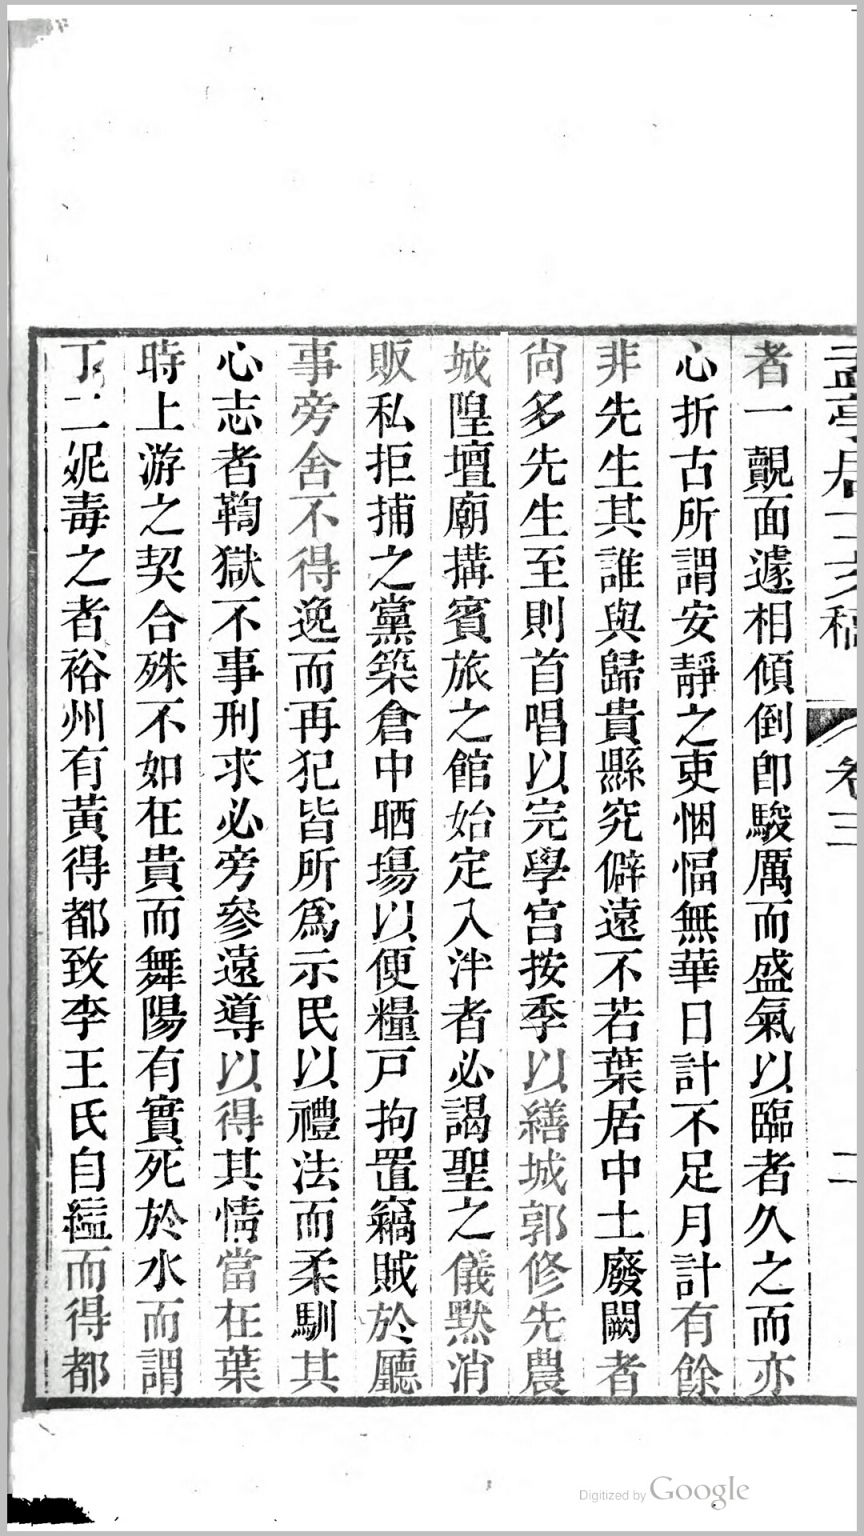 孟亭居士文稿 卷三 二
者一覿面遽相傾倒卽駿厲而盛氣以臨者久之而亦
心折古所謂安靜之吏悃愊無華日計不足月計有餘
非先生其誰與歸貴縣究僻遠不若葉居中土廢闕者
尙多先生至則首唱以完學宮按季以繕城郭修先農
城隍壇廟搆賓旅之館始定入泮者必謁聖之儀黙消
販私拒捕之黨築倉中晒塲以便糧戸拘置竊賊於廳
事旁舍不得逸而再犯皆所爲示民以禮法而柔馴其
心志者鞫獄不事刑求必旁參遠導以得其情當在葉
時上游之契合殊不如在貴而舞陽有實死於水而謂
丁二妮毒之者裕州有黃得都致李王氏自縊而得都
Digitized by Google